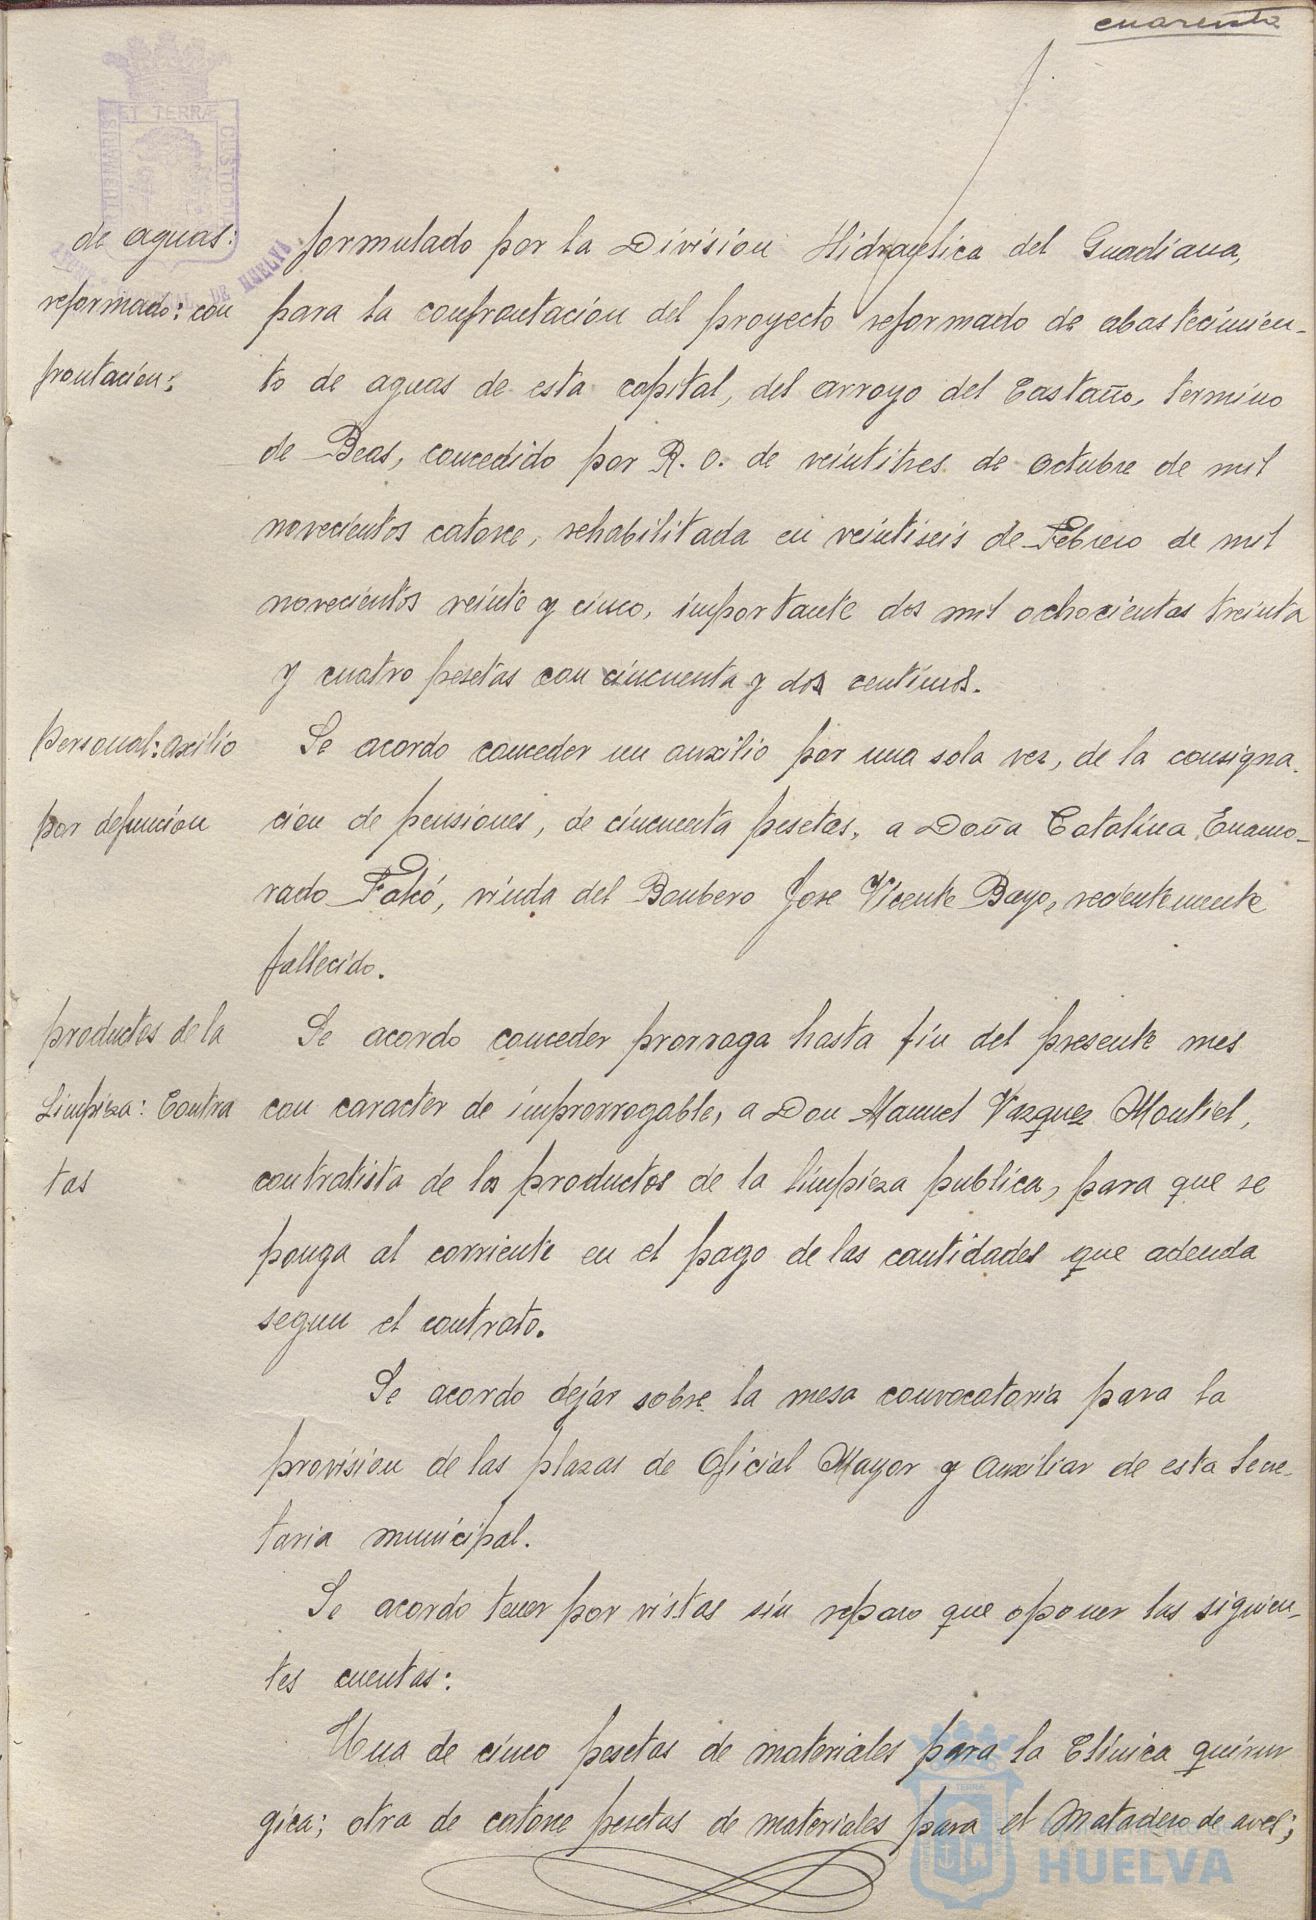 cuarenta
ET TERRÆ
CUSTODIA
DE HUELVA
de aguas:
reformado: con
frontacion:
formulado por la Division Hidraulica del Guadiana,
para la confrontación del proyecto reformado de abastecimien-
to de aguas de esta capital, del arroyo del Castaño, termino
de Beas, concedido por R. O. de veintitres de octubre de mil
novecientos catorce, rehabilitada en veintiseis de Febrero de mil
novecientos veinte y cinco, importante dos mil ochocientas treinta
y cuatro pesetas con cincuenta y dos centimos.
personal: axilio
por defuncion
Se acordo conceder un auxilio por una sola vez, de la consigna-
cion de pensiones, de cincuenta pesetas, a Doña Catalina Enamo-
rado, viuda del Bombero Jose Vicente Bayo, recientemente
fallecido.
productos de la
Limpieza: Contra
tas
Se acordo conceder prorroga hasta fin del presente mes
con caracter de improrrogable, a Don Manuel Vazquez Montiel,
contratista de los productos de la limpieza publica, para que se
ponga al corriente en el pago de las cantidades que adeuda
segun el contrato.
Se acordo dejar sobre la mesa convocatoria para la
provision de las plazas de Oficial Mayor y Auxiliar de esta Secre-
taria municipal.
Se acordo tener por vistas sin reparo que oponer las siguien-
tes cuentas:
Una de cinco pesetas de materiales para la Clínica quirur
gica; otra de catorce pesetas de materiales para el Matadero de aves;
HUELVA